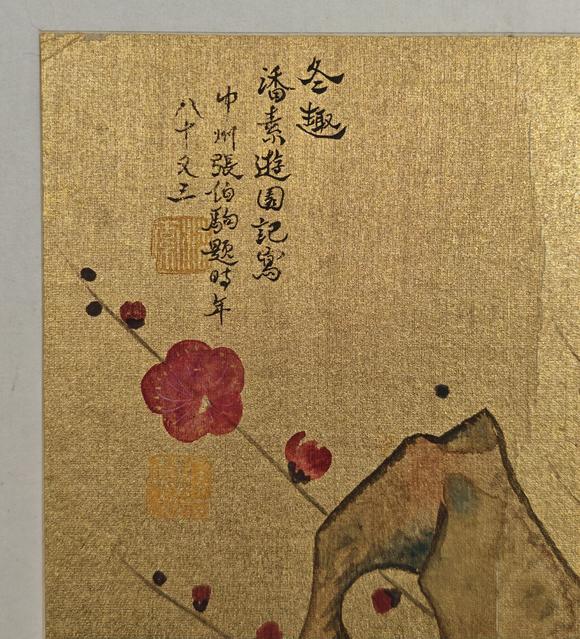 冬趣
潘素遊園記寫
中州張伯駒題時年
八十又三